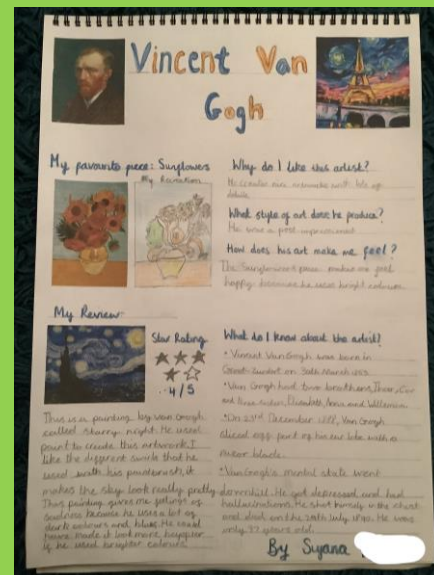 Vincent Van
Gogh
My favourite piece: Sunflowers
My Recreation
Why do I like this artist?
He creates nice artworks with lots of
details.
What style of art does he produce?
He was a post-impressionist
How does his art make me feel?
The Sunflowers piece makes me feel
happy because he used bright colours.
My Review:
Star Rating
4/5
This is a painting by Van Gogh
called starry night. He used
paint to create this artwork. I
like the different swirls that he
used with his paintbrush, it
makes the sky look really pretty.
This painting gives me feelings of
sadness because he uses a lot of
dark colours and blues. He could
have made it look more happier
if he used brighter colours.
What do I know about the artist?
• Vincent Van Gogh was born in
Groot-Zundert on 30th March 1853.
• Van Gogh had two brothers, Theo, Cor
and three sisters, Elisabeth, Anna and Willemin
• On 23rd December 1888, Van Gogh
sliced off part of his ear lobe with a
razor blade.
• Van Gogh's mental state went
downhill. He got depressed and had
hallucinations. He shot himself in the chest
and died on the 29th July 1890. He was
only 37 years old.
By Syana